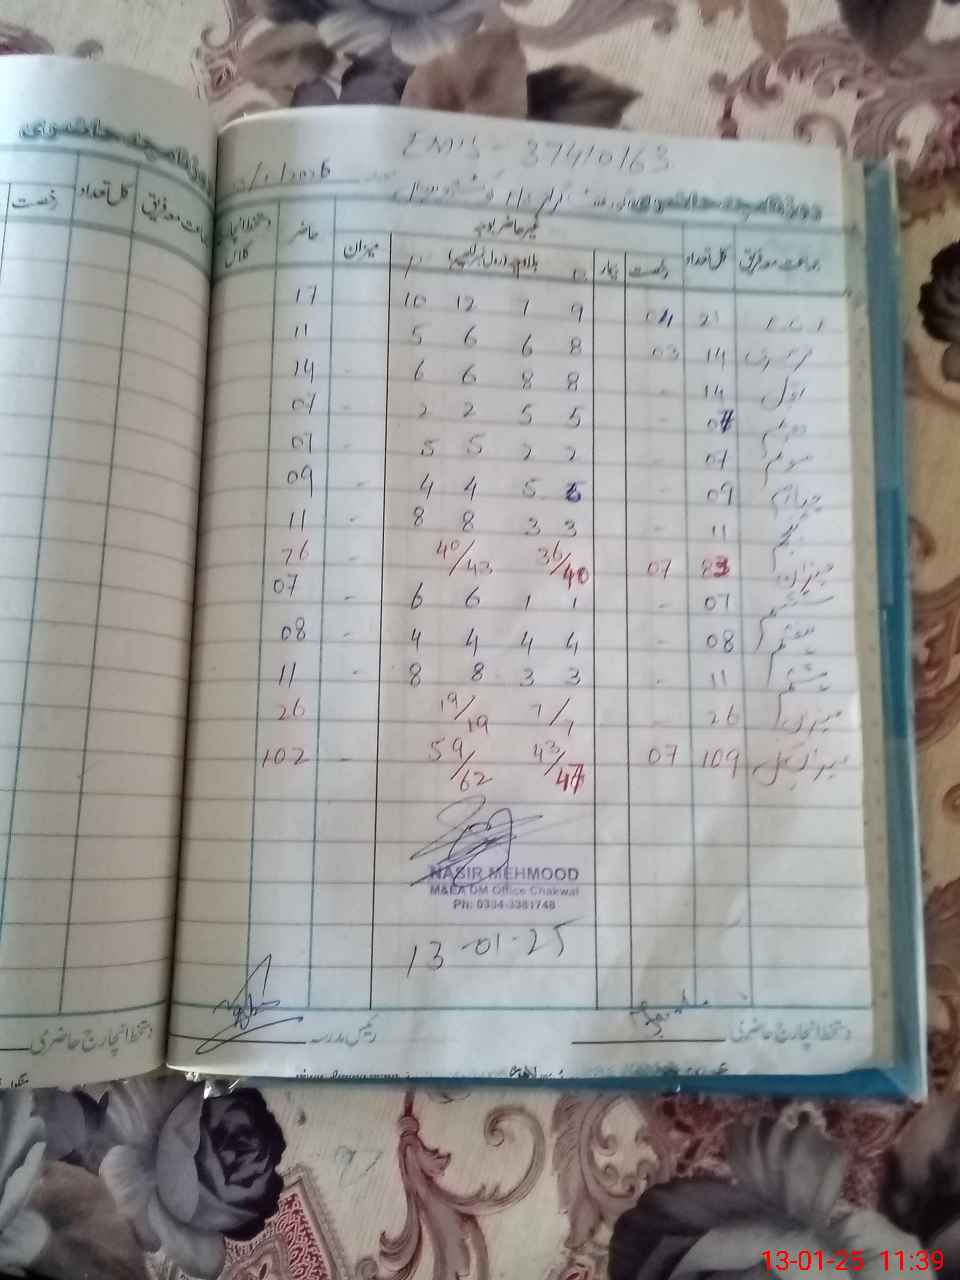 روزنامچہ حاضری
رخصت کل تعداد جماعت معہ فریق
EMIS - 37410163
روزنامچہ حاضری
جماعت معہ فریق کل تعداد رخصت بیمار غیر حاضر بوجہ میزان حاضر دستخط انچارج کلاس
21 04 9 7 12 10 17
14 03 8 6 6 5 11
اول 14 - 8 8 6 6 - 14
دوئم 07 - 5 5 2 2 - 07
سوئم 07 - 2 2 5 5 07
چہارم 09 - 5 5 4 4 - 09
پنجم 11 - 3 3 8 8 - 11
میزان 83 07 36/40 40/43 - 76
ششم 07 - 1 1 6 6 - 07
ہفتم 08 - 4 4 4 4 - 08
ہشتم 11 - 3 3 8 8 - 11
میزان 26 - 7/7 19/19 26
میزان کل 109 07 43/47 59/62 - 102
NASIR MEHMOOD
M&EA DM Office Chakwal
Ph: 0334-3381748
13-01-25
دستخط انچارج حاضری رئیس مدرسہ
دستخط انچارج حاضری
13-01-25 11:39